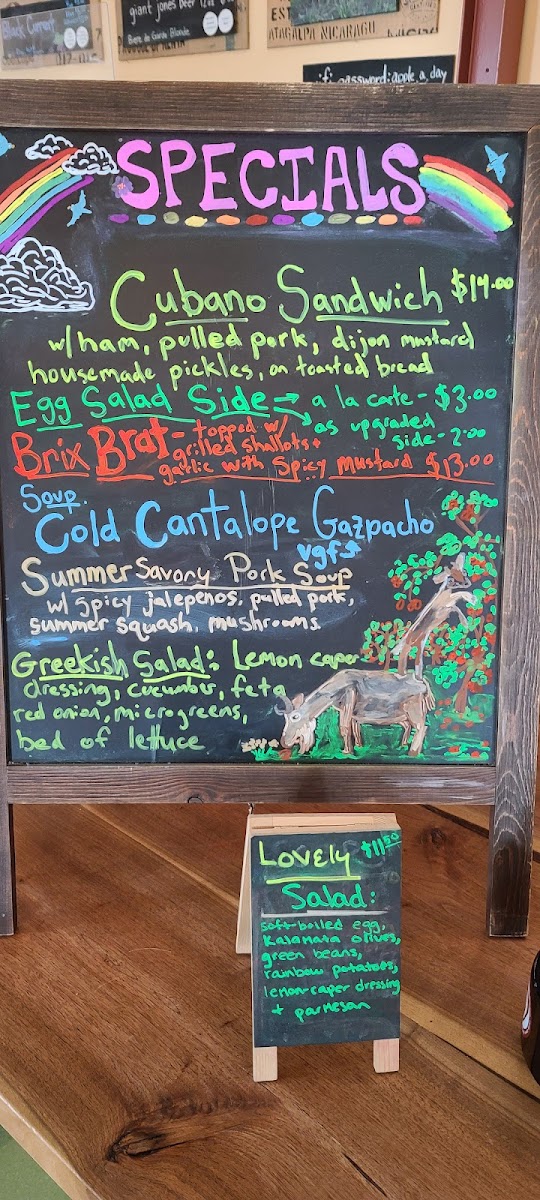 Black Currant
giant jones beer 12oz
Biere de Garde Blonde
EST
ATAGALPA NICARAGU
wifi password: apple_a_day
SPECIALS
Cubano Sandwich $14.00
w/ham, pulled pork, dijon mustard
housemade pickles, on toasted bread
Egg Salad Side → a la carte - $3.00
as upgraded
side - 2.00
Brix Brat - topped w/
grilled shallots +
garlic with Spicy Mustard $13.00
Soup.
Cold Cantalope Gazpacho
vgf
Summer Savory Pork Soup
w/ spicy jalepenos, pulled pork,
summer squash, mushrooms.
Greekish Salad: Lemon caper
dressing, cucumber, feta
red onion, microgreens,
bed of lettuce
Lovely $11.50
Salad:
soft-boiled egg,
Kalamata olives,
green beans,
rainbow potatoes,
lemon-caper dressing
+ parmesan